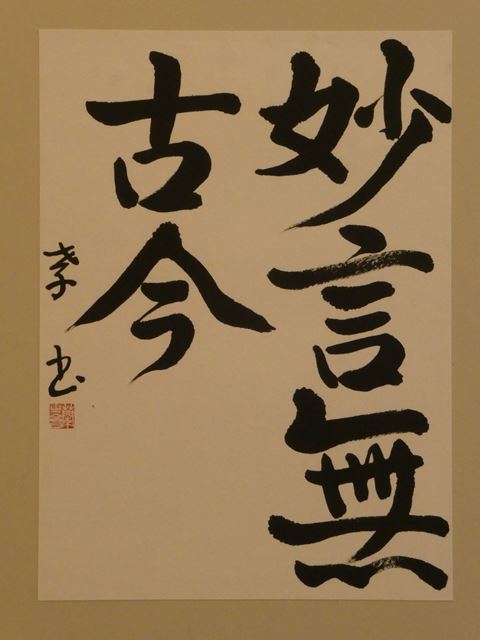 妙言無
古今
孝書